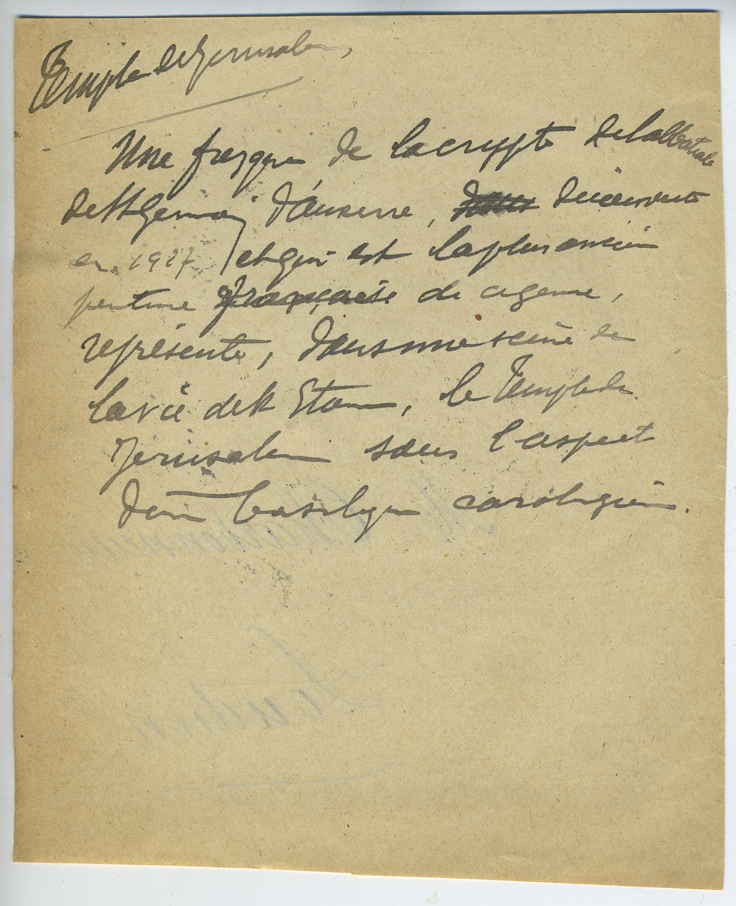 Temple de Jerusalem,
Une fresque de la crypte de l'abbatiale
de St Germain d'Auxerre, découverte
en 1927 et qui est la plus ancienne
peinture française de ce genre,
représente, dans une scène de
la vie de St Etienne, le Temple de
Jerusalem sous l'aspect
d'une basilique carolingienne.